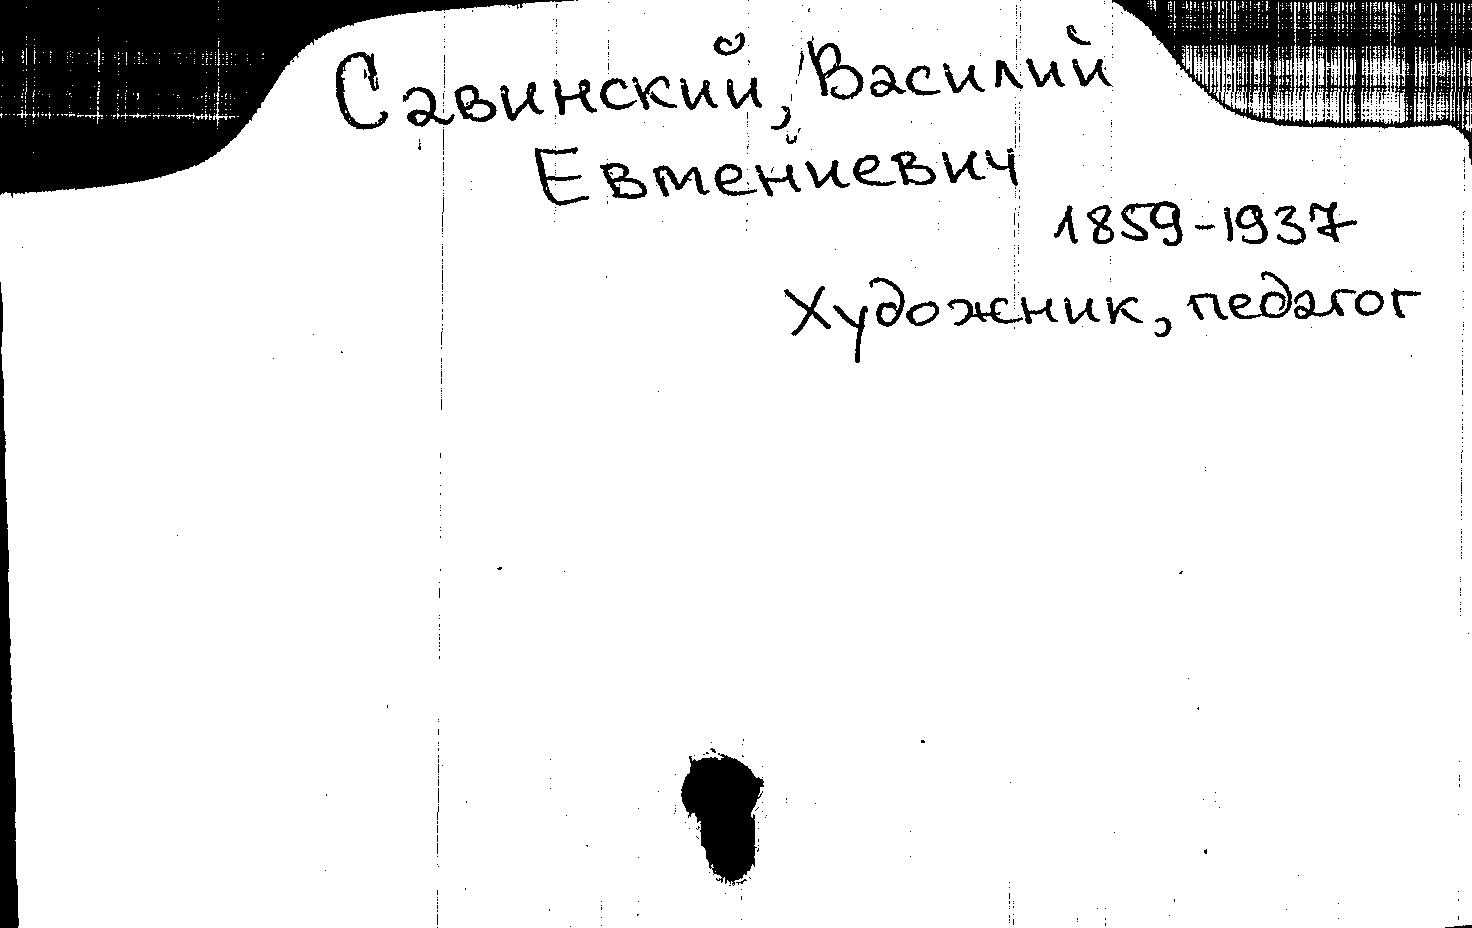 Савинский, Василий
Евтениевич
1859-1937
Художник, педагог